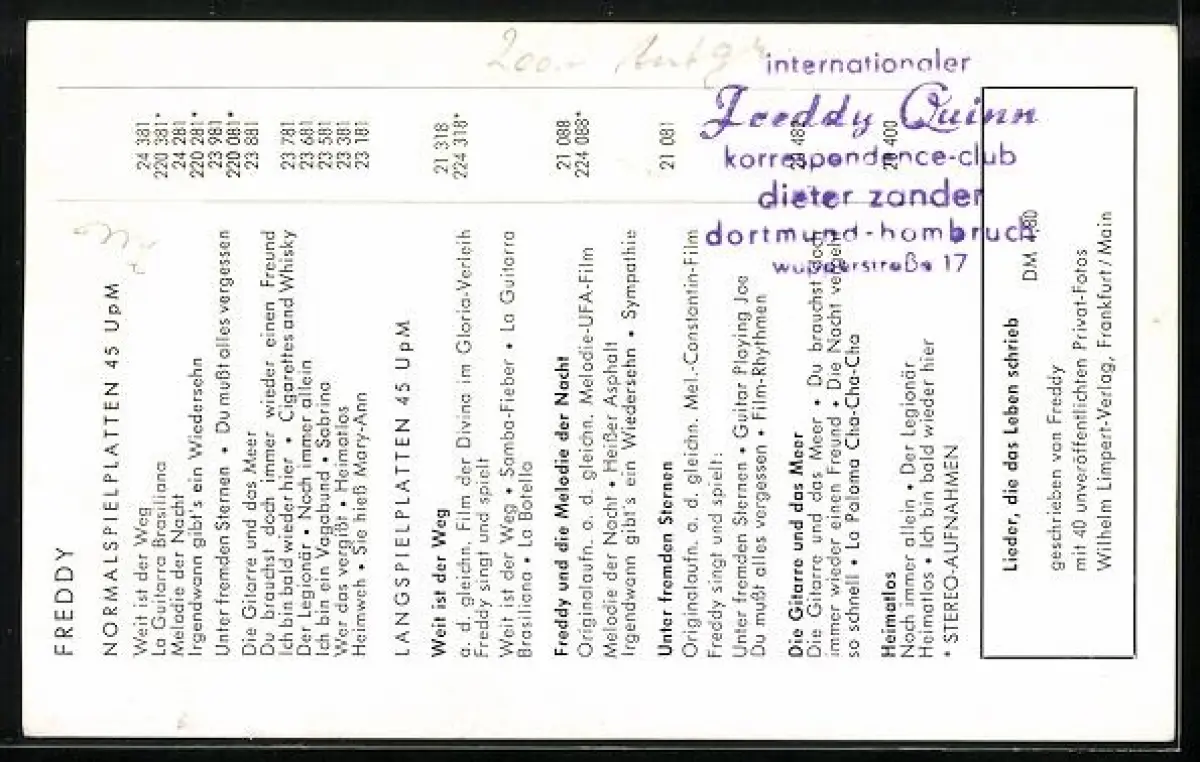 internationaler
Freddy Quinn
korrespondence-club
dieter zander
dortmund-hombruch
wupperstraße 17
FREDDY
NORMALSPIELPLATTEN 45 UpM
Weit ist der Weg 24 381
La Guitarra Brasiliana 220 381*
Melodie der Nacht 24 281
Irgendwann gibt's ein Wiedersehn 220 281*
Unter fremden Sternen • Du mußt alles vergessen 23 981
220 081*
Die Gitarre und das Meer 23 881
Du brauchst doch immer wieder einen Freund
Ich bin bald wieder hier • Cigarettes and Whisky 23 781
Der Legionär • Noch immer allein 23 681
Ich bin ein Vagabund • Sabrina 23 581
Wer das vergißt • Heimatlos 23 381
Heimweh • Sie hieß Mary-Ann 23 181
LANGSPIELPLATTEN 45 UpM
Weit ist der Weg 21 318
a. d. gleichn. Film der Divina im Gloria-Verleih 224 318*
Freddy singt und spielt
Weit ist der Weg • Samba-Fieber • La Guitarra
Brasiliana • La Botella
Freddy und die Melodie der Nacht 21 088
Originalaufn. a. d. gleichn. Melodie-UFA-Film 224 088*
Melodie der Nacht • Heißer Asphalt
Irgendwann gibt's ein Wiedersehn • Sympathie
Unter fremden Sternen 21 081
Originalaufn. a. d. gleichn. Mel.-Constantin-Film
Freddy singt und spielt:
Unter fremden Sternen • Guitar Playing Joe
Du mußt alles vergessen • Film-Rhythmen
Die Gitarre und das Meer
Die Gitarre und das Meer • Du brauchst doch
immer wieder einen Freund • Die Nacht vergeht
so schnell • La Paloma Cha-Cha-Cha
Heimatlos
Noch immer allein • Der Legionär
Heimatlos • Ich bin bald wieder hier
* STEREO-AUFNAHMEN
Lieder, die das Leben schrieb DM
geschrieben von Freddy
mit 40 unveröffentlichten Privat-Fotos
Wilhelm Limpert-Verlag, Frankfurt/Main